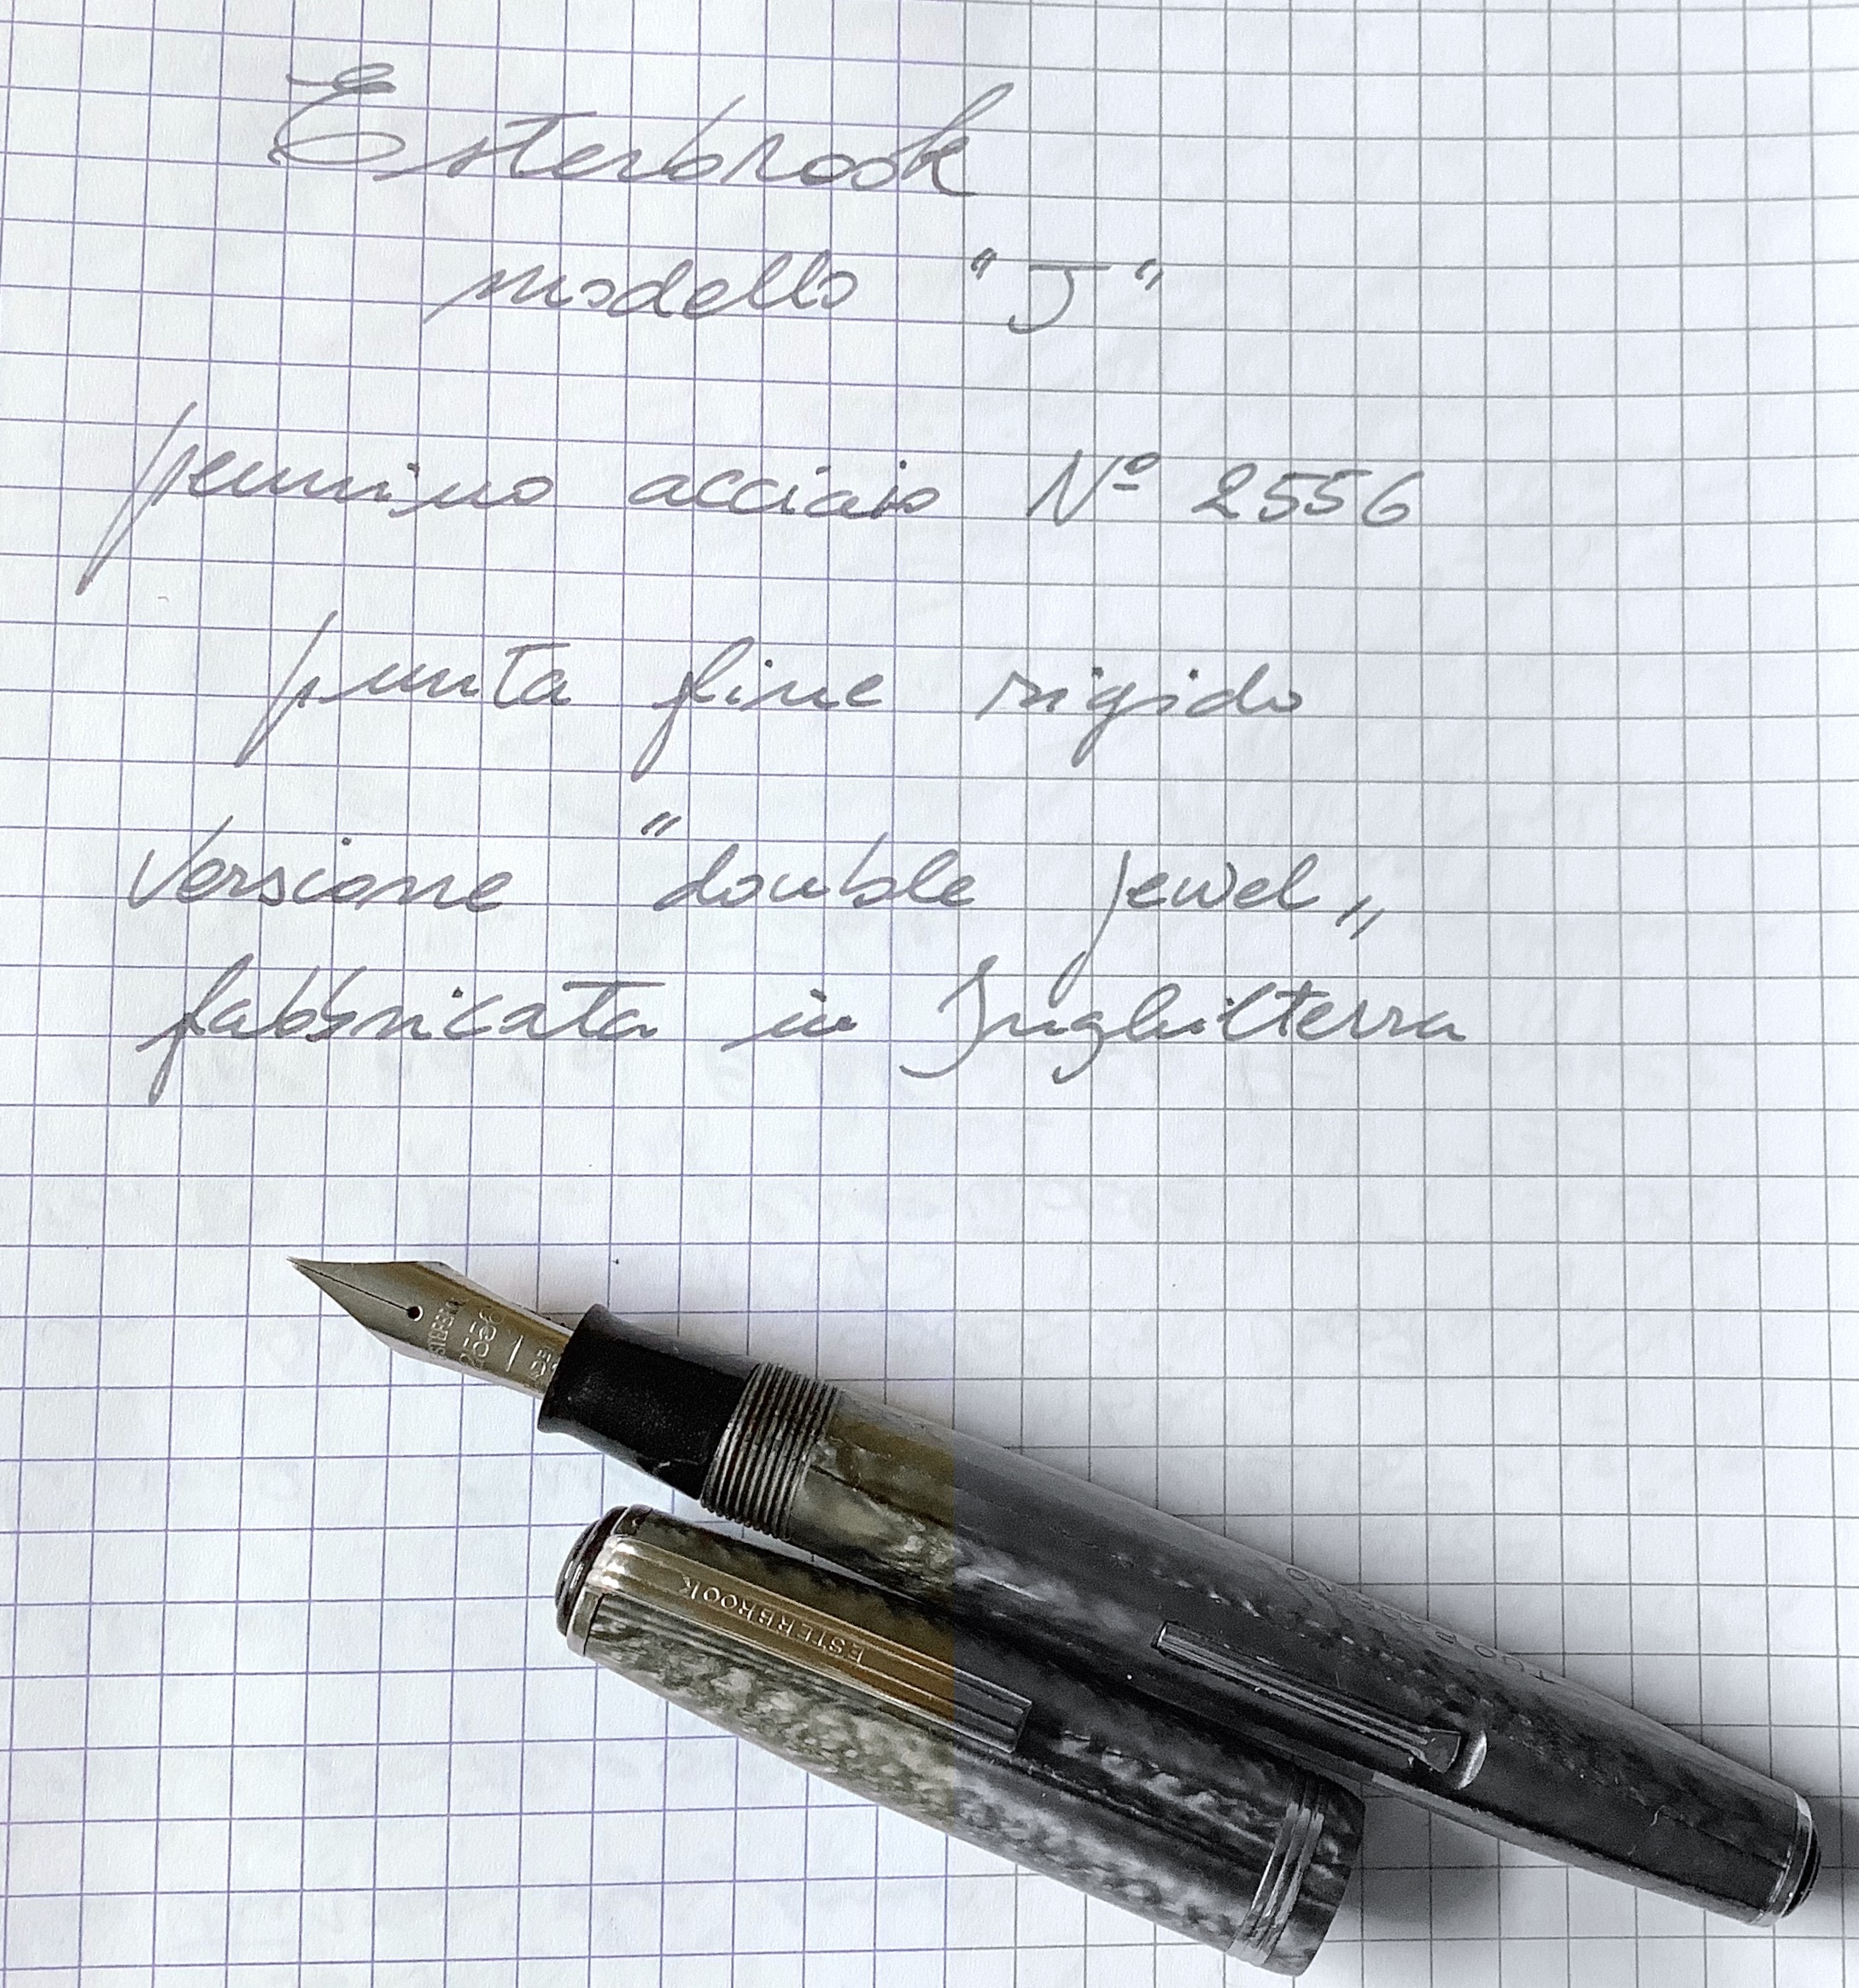 Esterbrook
modello "J"
pennino acciaio Nº 2556
punta fine rigido
Versione "double jewel„
fabbricata in Inghilterra
ESTERBROOK
2556
ESTERBROOK